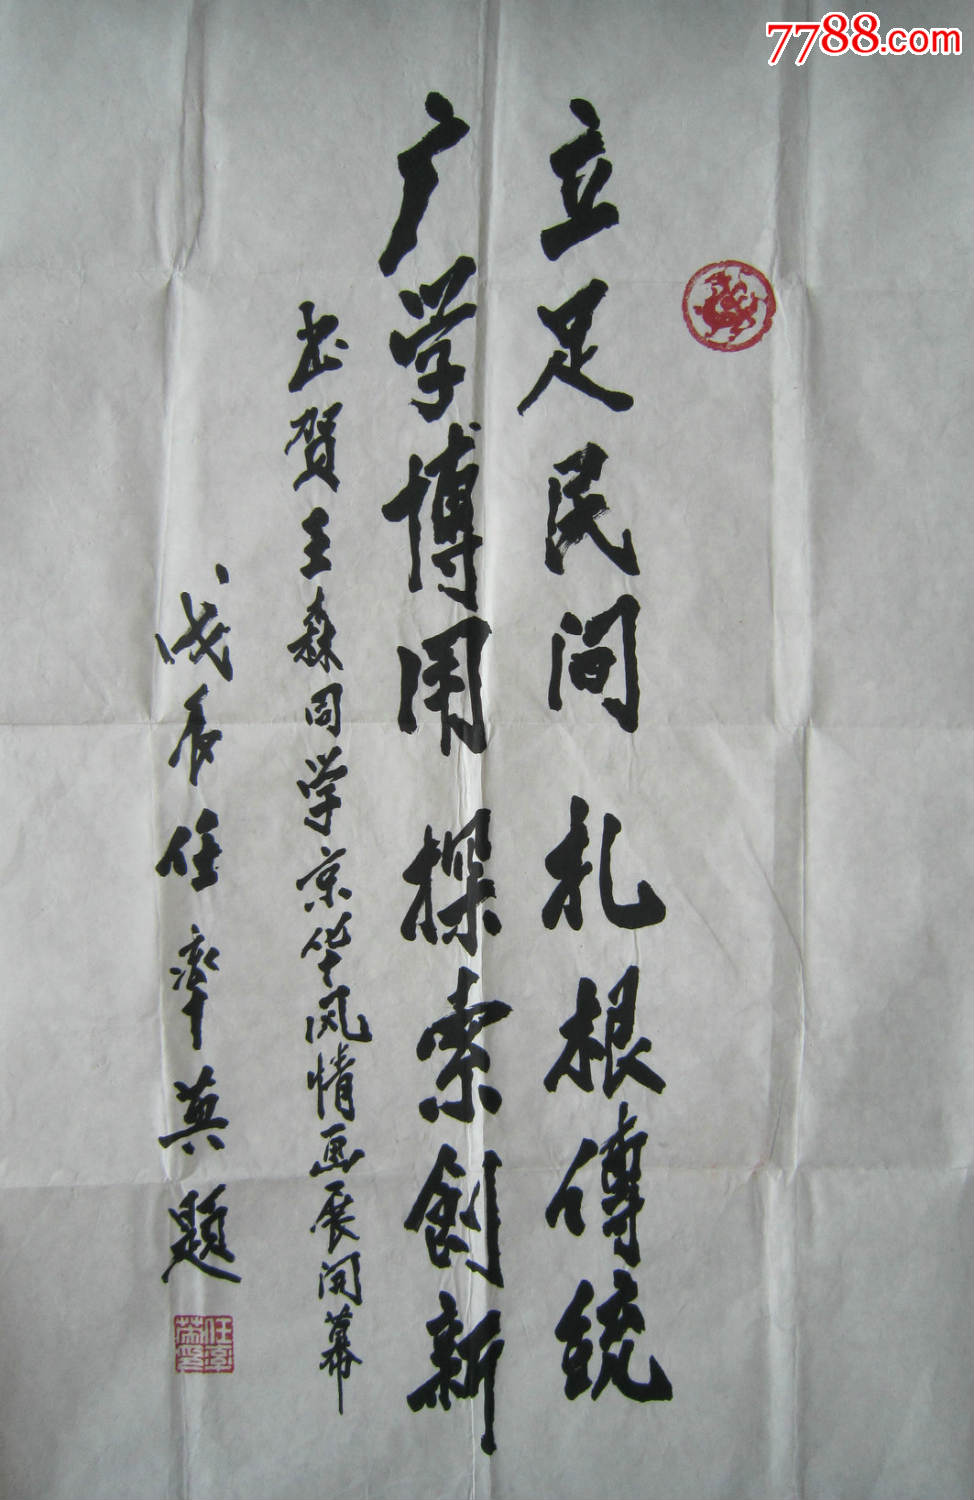 7788.com
立足民间扎根傳統
广学博用探索創新
书贺王森同学京华风情画展開幕
戊辰任率英题